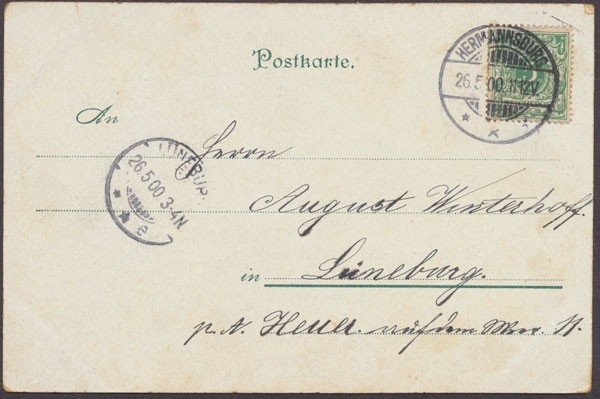 Postkarte.
HERMANNSBURG
26.5.00.11-12V.
An
LÜNEBURG
26.5.00.3-4N
* * e
Herrn
August Winterhoff.
in Lüneburg.
p. A. auf dem